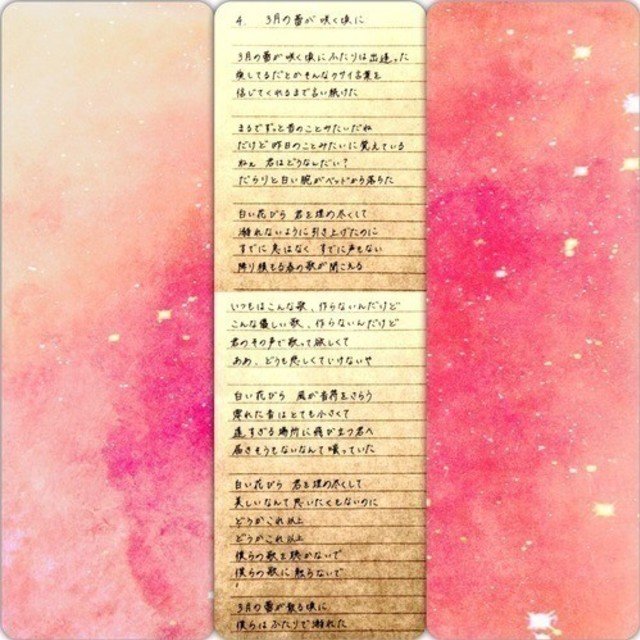 4. 3月の蕾が咲く頃に
3月の蕾が咲く頃にふたりは出逢った
戻してるだとかそんなクサイ言葉を
信じてくれるまで言い続けた
まるでずっと昔のことみたいだね
だけど昨日のことみたいに覚えている
ねぇ 君はどうなんだい?
だらりと白い腕がベッドから落ちた
白い花びら 君を埋め尽くして
溺れないように引き上げたのに
すでに息はなく すでに声もない
降り積もる春の歌が聞こえる
いつもはこんな歌、作らないんだけど
こんな優しい歌、作らないんだけど
君のその声で歌って欲しくて
ああ、どうも悲しくていけないや
白い花びら 風が音符をさらう
零れた音はとても小さくて
遠すぎる場所に飛び立つ君へ
届きそうもないなんて嘆いていた
白い花びら 君を埋め尽くして
美しいなんて思いたくもないのに
どうかこれ以上
どうかこれ以上
僕らの歌を聴かないで
僕らの歌に触らないで
3月の蕾が散る頃に
僕らはふたりで溺れた